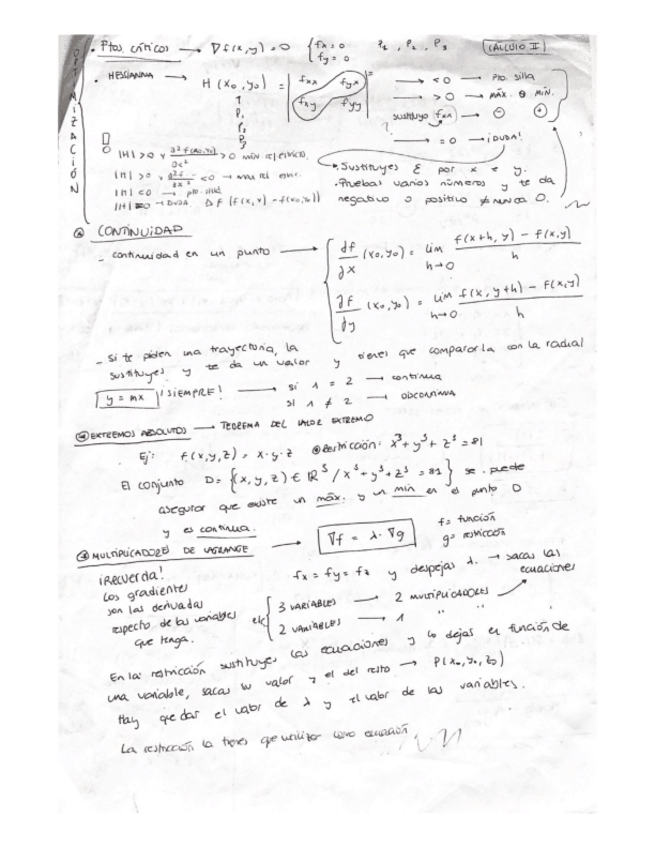 OPTIMIZACIÓN
• Ptos. críticos → ∇f(x,y) = 0 { fx = 0 P1, P2, P3 CÁLCULO II
fy = 0
• HESSIANNA → H(x0,y0) = | fxx fyx | =
| fxy fyy |
→ < 0 → Pto. silla
→ > 0 → MÁX. o MIN.
sustituyo fxx → ⊖ ⊕
→ = 0 → ¡DUDA!
P1
P2
P3
|H| > 0 y ∂²f(x0,y0)/∂x² > 0 mín. rel
|H| > 0 y ∂²f/∂x² < 0 → max rel
|H| < 0 → pto. silla
|H| = 0 → DUDA. Δf (f(x,y) - f(x0,y0))
• Sustituyes ε por x e y.
• Pruebas varios números y te da
negativo o positivo ≠ nunca 0.
CONTINUIDAD
- continuidad en un punto → { ∂f/∂x (x0,y0) = lim h→0 f(x+h, y) - f(x,y) / h
∂f/∂y (x0,y0) = lim h→0 f(x, y+h) - f(x,y) / h
- Si te piden una trayectoria, la
sustituyes y te da un valor y tienes que compararla con la radial
y = mx ¡SIEMPRE! → si 1 = 2 → continua
SI 1 ≠ 2 → DISCONTINUA
EXTREMOS ABSOLUTOS → TEOREMA DEL VALOR EXTREMO
Ej: f(x,y,z) = x·y·z Restricción: x³+y³+z³=81
El conjunto D = {(x,y,z) ∈ ℝ³ / x³+y³+z³ = 81} se puede
asegurar que existe un máx. y un min en el punto D
y es continua.
MULTIPLICADORES DE LAGRANGE → ∇f = λ·∇g f = función
g = restricción
¡Recuerda!
Los gradientes
son las derivadas
respecto de las variables
que tenga.
fx = fy = fz y despejas λ. → sacas las
ecuaciones
{ 3 VARIABLES → 2 MULTIPLICADORES
2 VARIABLES → 1 " "
En la restricción sustituyes las ecuaciones y lo dejas en función de
una variable, sacas su valor y el del resto → P(x0,y0,z0)
Hay que dar el valor de λ y el valor de las variables.
La restricción la tienes que utilizar como ecuación